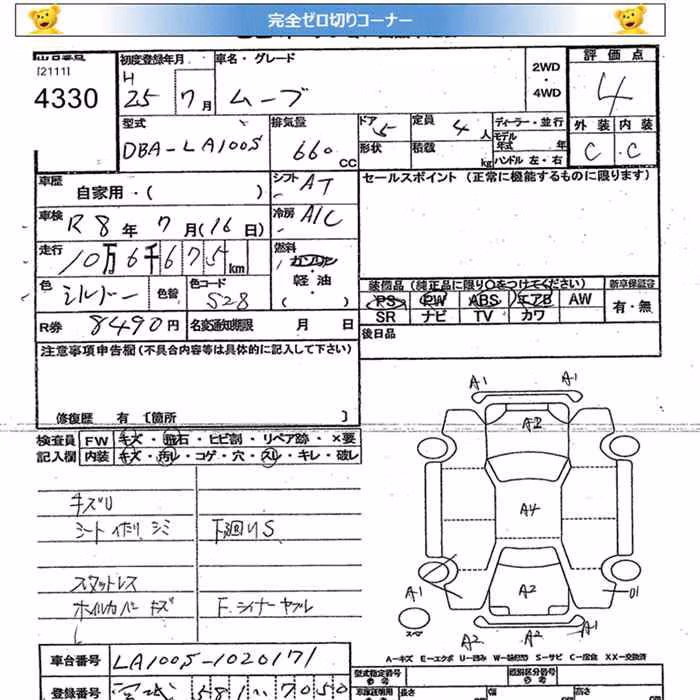 完全ゼロ切りコーナー
[2111]
4330
初度登録年月 車名・グレード
H 25年 7月 ムーブ
2WD
・
4WD
評価点
4
外装 内装
C C
型式
DBA-LA100S
排気量
660 CC
ドア 5 定員 4人
形状 積載 kg
ディーラー・並行
モデル年式 年
ハンドル 左・右
車歴
自家用・( )
シフト AT
セールスポイント (正常に機能するものに限ります)
車検
R8年 7月(16日)
冷房 A/C
走行
10万6千675km
燃料
ガソリン
・
軽油
・
( )
色 シルバー 色替
色コード S28
装備品 (純正品に限り○をつけてください) 新車保証書
PS PW ABS エアB AW 有・無
SR ナビ TV カワ
R券 8490円 名変通知期限 月 日
後日品
注意事項申告欄 (不具合内容等は具体的に記入して下さい)
修復歴 有 [箇所 ]
検査員 FW キズ・飛石・ヒビ割・リペア跡・×要
記入欄 内装 キズ・汚レ・コゲ・穴・スレ・キレ・破レ
キズU
シート イタミ シミ 下廻りS
スタットレス
ホイルカバーキズ F.ライナーヤブレ
A1 A1
A2
A4
A2
A1
スペア
A2 A2 A1
A-キズ E-エクボ U-凹み W-補修跡 S-サビ C-腐食 XX-交換済
車台番号 LA100S-1020171
登録番号
型式指定番号 類別区分番号
長さ 幅 高さ